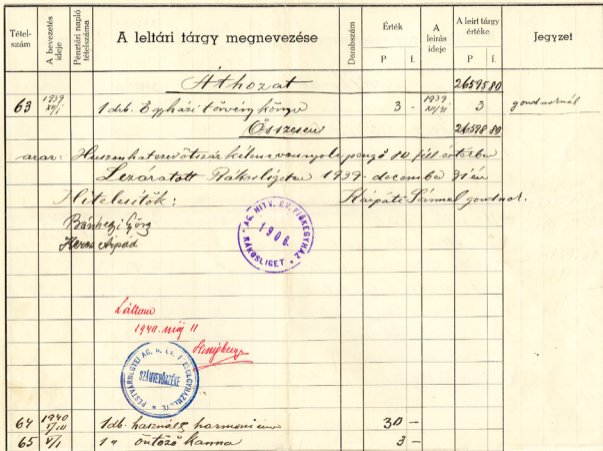 Tétel-szám A bevezetés ideje Pénztári napló tételszáma A leltári tárgy megnevezése Darabszám Érték A leírás ideje A leirt tárgy értéke Jegyzet
P f. P f.
Áthozat 26595 80
63 1939 XII/1 1 db. Egyházi törvény könyv 3 - 1939 XII/31 3 gondnoknál
Összesen 26598 80
azaz: Huszonhatezerötszáz kilencvennyolc pengő 80 fill értékben
Lezáratott Rákosligeten 1939. december 31 én
Hitelesítők: Kárpáti Sámuel gondnok.
Bánhegyi Györg
Árpád
ÁG. HITV. EV. FIÓKEGYHÁZ
1906.
RÁKOSLIGET
Láttam
1940. máj 11
PESTVÁRMEGYEI ÁG. H. EV. EGYHÁZMEGYE
SZÁMVEVŐSZÉKE
64 1940 1 db. használt harmonium 30 -
65 V/1 1 " öntöző kanna 3 -